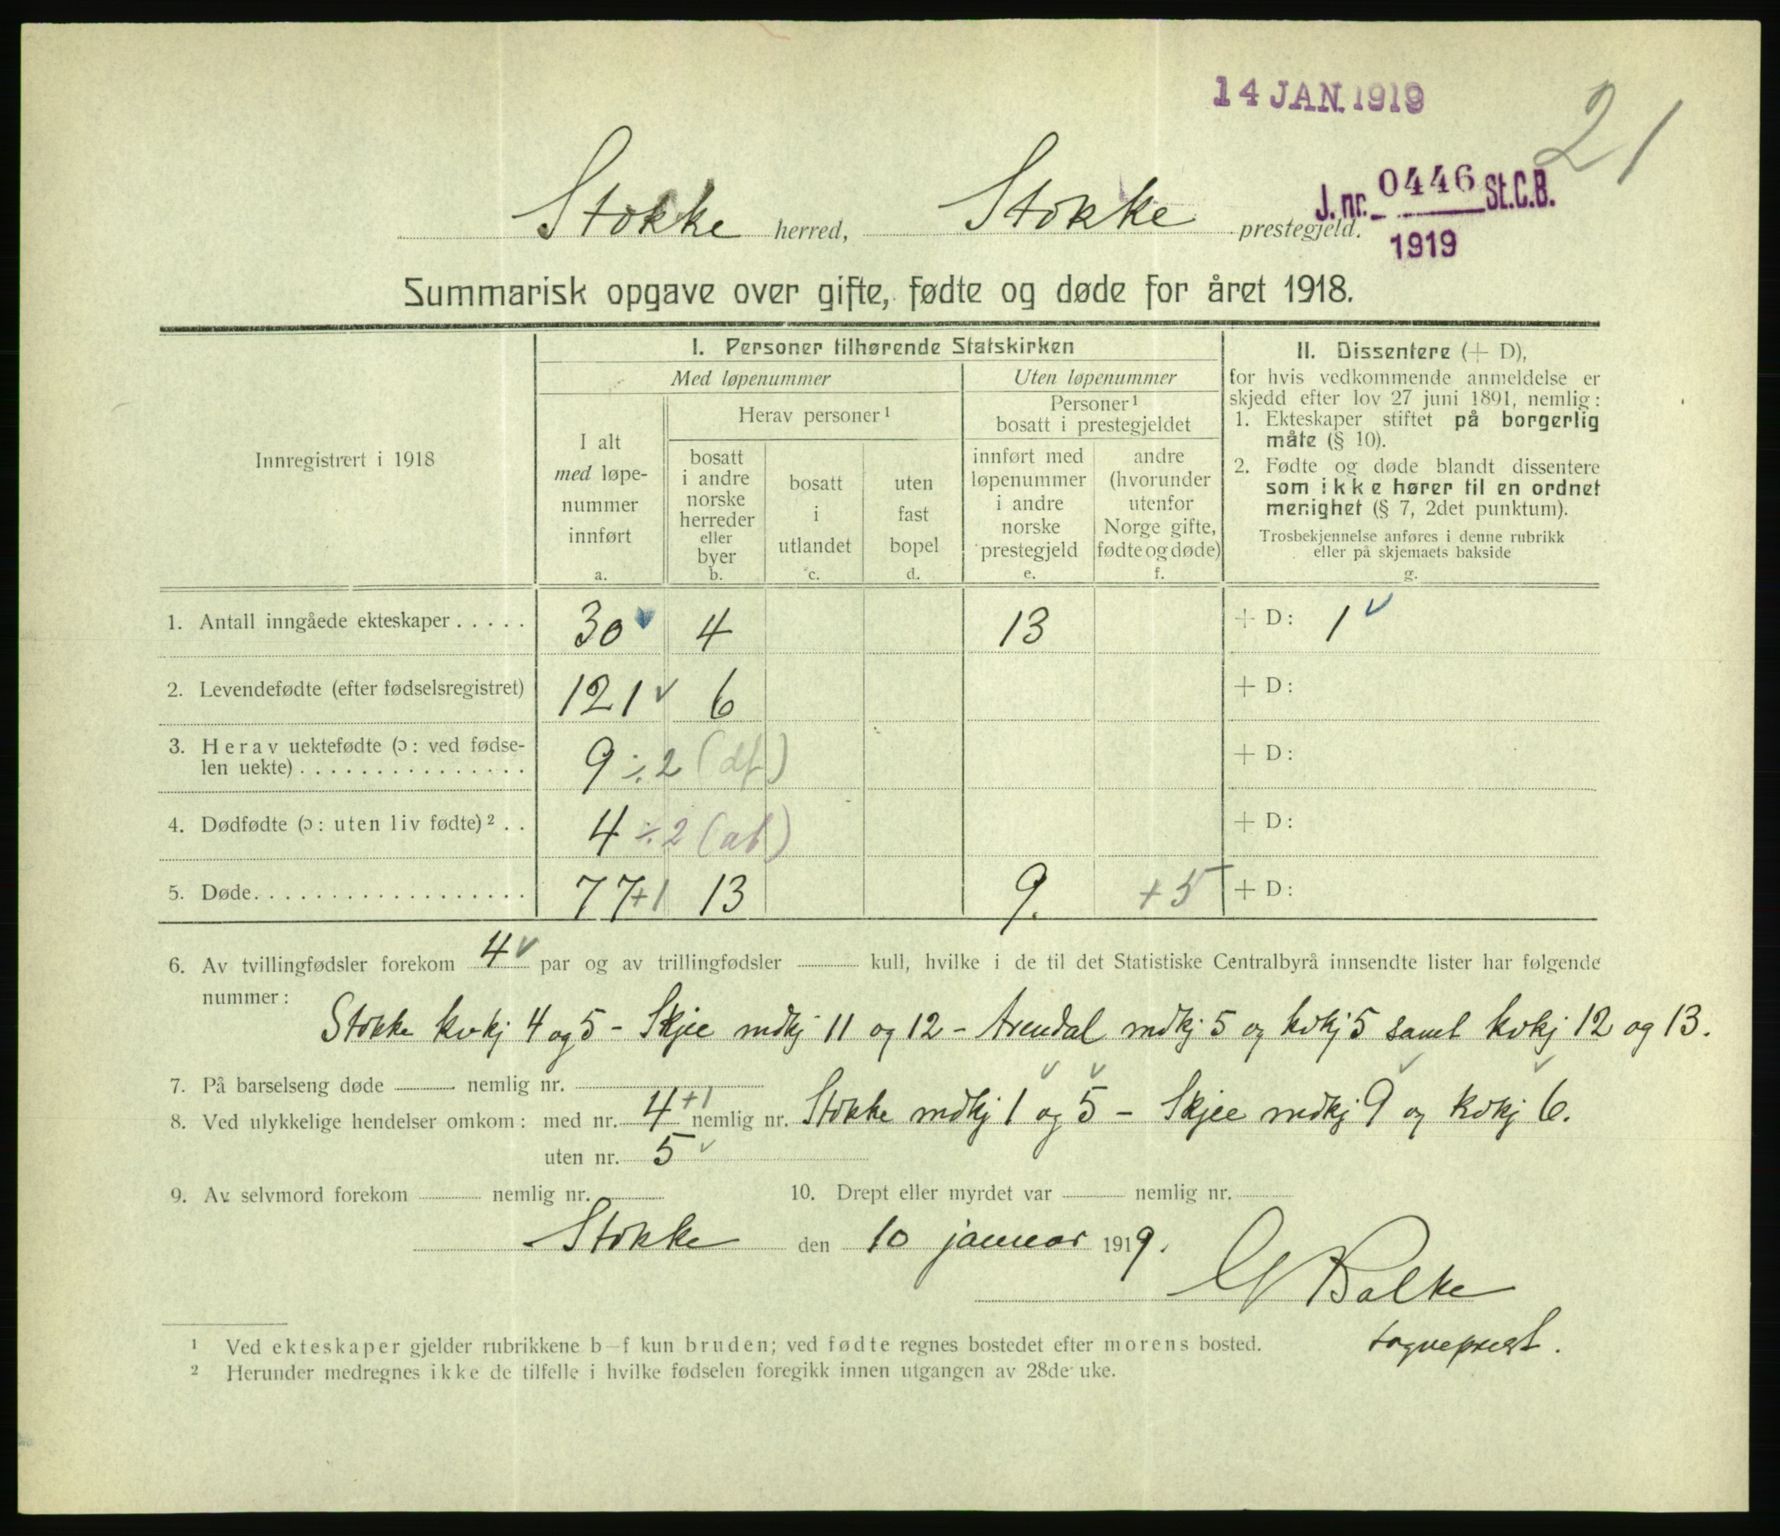 14 JAN. 1919
21
J. nr. 0446 St.C.B.
1919
Stokke herred, Stokke prestegjeld.
Summarisk opgave over gifte, fødte og døde for året 1918.
Innregistrert i 1918
I. Personer tilhørende Statskirken
Med løpenummer
Uten løpenummer
I alt
med løpe-
nummer
innført
a.
Herav personer¹
bosatt
i andre
norske
herreder
eller
byer
b.
bosatt
i
utlandet
c.
uten
fast
bopel
d.
Personer¹
bosatt i prestegjeldet
innført med
løpenummer
i andre
norske
prestegjeld
e.
andre
(hvorunder
utenfor
Norge gifte,
fødte og døde)
f.
II. Dissentere (+ D),
for hvis vedkommende anmeldelse er
skjedd efter lov 27 juni 1891, nemlig:
1. Ekteskaper stiftet på borgerlig
måte (§ 10).
2. Fødte og døde blandt dissentere
som ikke hører til en ordnet
menighet (§ 7, 2det punktum).
Trosbekjennelse anføres i denne rubrikk
eller på skjemaets bakside
g.
1. Antall inngåede ekteskaper . . . . . 30 4 13 + D: 1
2. Levendefødte (efter fødselsregistret) 121 6 + D:
3. Herav uektefødte (ɔ: ved fødse-
len uekte) . . . . . . . . . . . . . . . 9 ÷ 2 (df) + D:
4. Dødfødte (ɔ: uten liv fødte)² . . 4 ÷ 2 (ab) + D:
5. Døde. . . . . . . . . . . . . . . . . . 77 +1 13 9. + 5 + D:
6. Av tvillingfødsler forekom 4 par og av trillingfødsler kull, hvilke i de til det Statistiske Centralbyrå innsendte lister har følgende
nummer:
Stokke kvkj 4 og 5 – Skjee mdkj 11 og 12 – Arendal mdkj 5 og kvkj 5 samt kvkj 12 og 13.
7. På barselseng døde nemlig nr.
8. Ved ulykkelige hendelser omkom: med nr. 4 +1 nemlig nr. Stokke mdkj 1 og 5 – Skjee mdkj 9 og kvkj 6.
uten nr. 5
9. Av selvmord forekom nemlig nr. 10. Drept eller myrdet var nemlig nr.
Stokke den 10 januar 1919.
G Balke
sogneprest.
¹ Ved ekteskaper gjelder rubrikkene b–f kun bruden; ved fødte regnes bostedet efter morens bosted.
² Herunder medregnes ikke de tilfelle i hvilke fødselen foregikk innen utgangen av 28de uke.